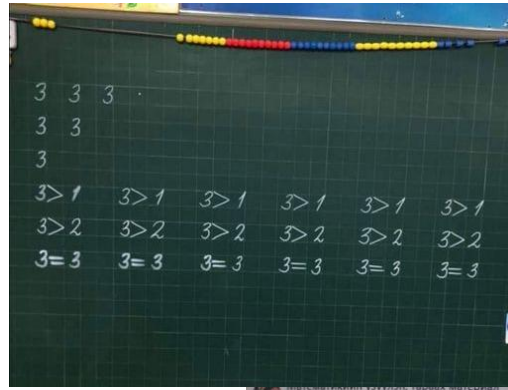 3 3 3 .
3 3
3
3>1 3>1 3>1 3>1 3>1 3>1
3>2 3>2 3>2 3>2 3>2 3>2
3=3 3=3 3=3 3=3 3=3 3=3